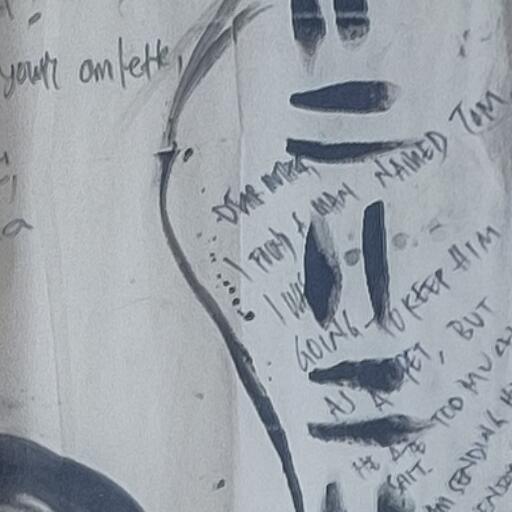 your omlette,
DEAR
I FOUND A MAN NAMED TOM
I WAS
GOING TO KEEP HIM
AS A PET, BUT
HE ATE TOO MUCH
SALT.
AM SENDING